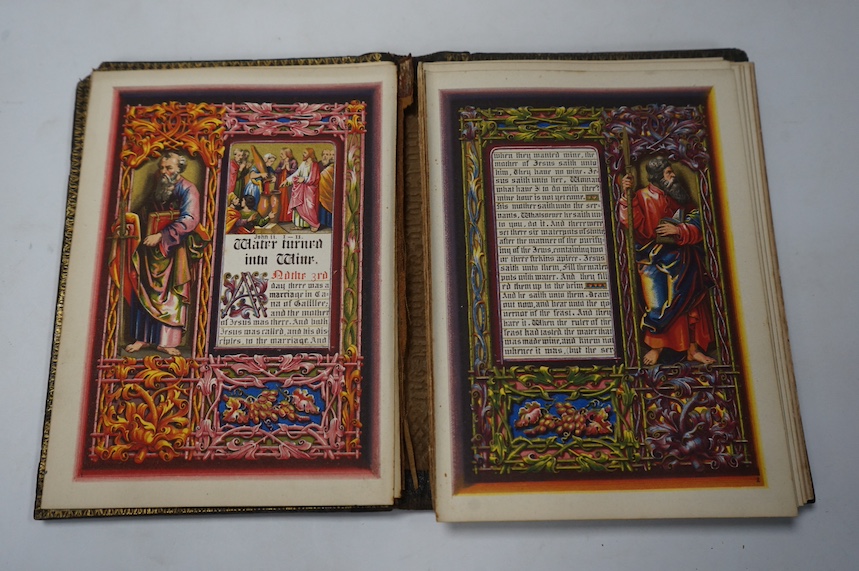 John II. 1–11.
Water turned
into Wine.
And the 3rd
day there was a
marriage in Ca
na of Galilee:
and the mother
of Jesus was there. And both
Jesus was called, and his dis
ciples, to the marriage. And
when they wanted wine, the
mother of Jesus saith unto
him, They have no wine. Je
sus saith unto her, Woman
what have I to do with thee?
mine hour is not yet come.
His mother saith unto the ser
vants, Whatsoever he saith un
to you, do it. And there were
set there six waterpots of stone
after the manner of the purify
ing of the Jews, containing two
or three firkins apiece. Jesus
saith unto them, Fill the water
pots with water. And they fill
ed them up to the brim
And he saith unto them, Draw
out now, and bear unto the go
vernor of the feast. And they
bare it. When the ruler of the
feast had tasted the water that
was made wine, and knew not
whence it was, (but the ser